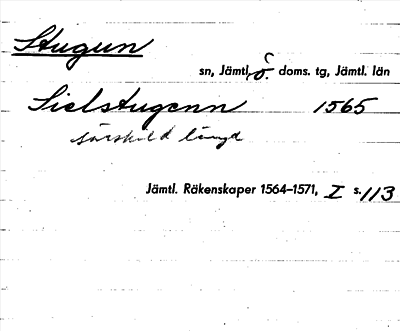 Stugun
sn, Jämtl. ö. doms. tg, Jämtl. län
Sielstugenn 1565
särskild längd
Jämtl. Räkenskaper 1564–1571, I s. 113